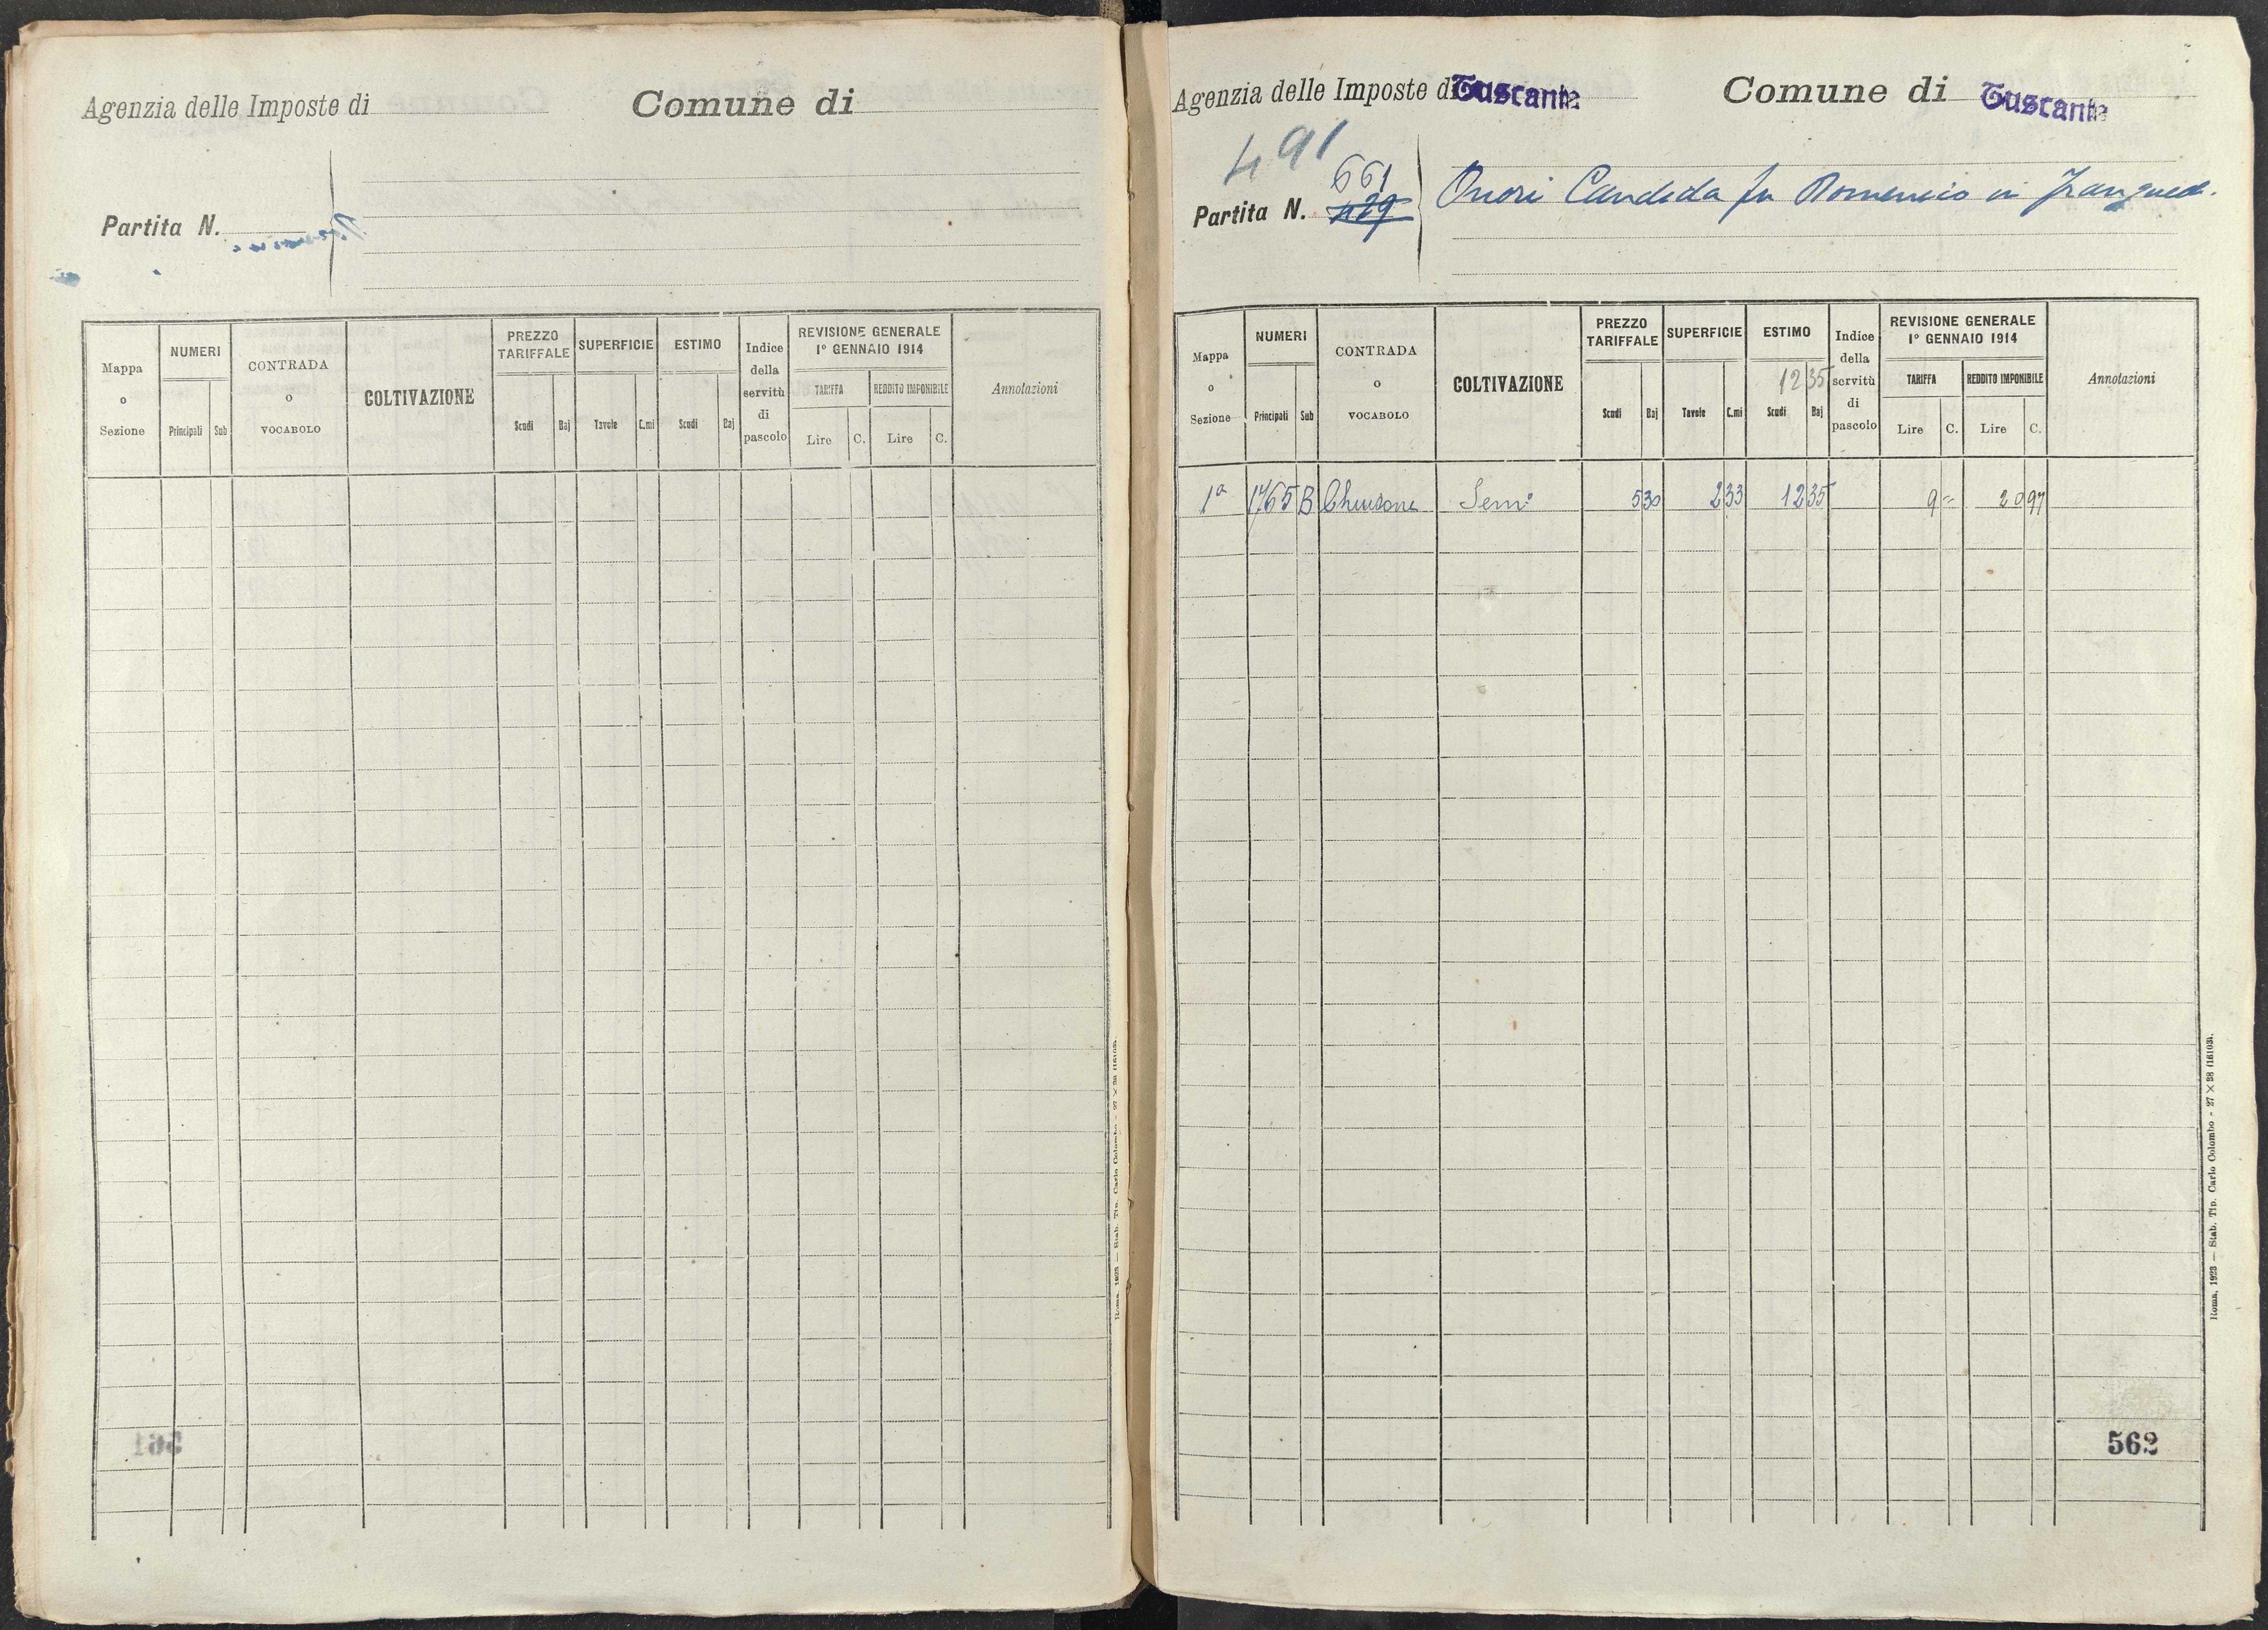 Agenzia delle Imposte di
Comune di
Partita N.
Mappa o Sezione
NUMERI
Principali Sub
CONTRADA o VOCABOLO
COLTIVAZIONE
PREZZO TARIFFALE
Scudi Baj
SUPERFICIE
Tavole C.mi
ESTIMO
Scudi Baj
Indice della servitù di pascolo
REVISIONE GENERALE
1° GENNAIO 1914
TARIFFA REDDITO IMPONIBILE
Lire C. Lire C.
Annotazioni
Roma, 1923 — Stab. Tip. Carlo Colombo - 27 X 38 (16103).
Agenzia delle Imposte di Tuscania
Comune di Tuscania
491
661
Partita N. 429
Onori Candida fu Domenico in
Mappa o Sezione
NUMERI
Principali Sub
CONTRADA o VOCABOLO
COLTIVAZIONE
PREZZO TARIFFALE
Scudi Baj
SUPERFICIE
Tavole C.mi
ESTIMO
12 35
Scudi Baj
Indice della servitù di pascolo
REVISIONE GENERALE
1° GENNAIO 1914
TARIFFA REDDITO IMPONIBILE
Lire C. Lire C.
Annotazioni
1a 1765 B Semi° 5 30 2 33 12 35 9 = 20 97
562
Roma, 1923 — Stab. Tip. Carlo Colombo - 27 X 38 (16103).